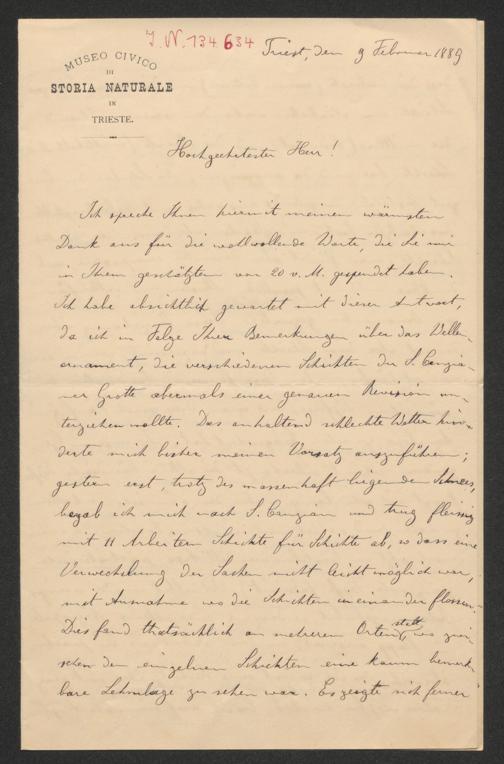 J. N. 134634
Triest, den 9 Februar 1889
MUSEO CIVICO
DI
STORIA NATURALE
IN
TRIESTE.
Hochgeehrtester Herr!
Ich spreche Ihnen hiermit meinen wärmsten
Dank aus für die wohlwollende Worte, die Sie mir
in Ihrem geschätzten vom 20 v. M. gespendet haben.
Ich habe absichtlich gewartet mit dieser Antwort,
da ich in Folge Ihrer Bemerkungen über das Wellen-
ornament, die verschiedenen Schichten der S. Canzia-
ner Grotte abermals einer genauen Revision un-
terziehen wollte. Das anhaltend schlechte Wetter hin-
derte mich bisher meinen Vorsatz auszuführen;
gestern erst, trotz des massenhaft liegenden Schnees,
begab ich mich nach S. Canzian und trug fleissig
mit 11 Arbeitern Schichte für Schichte ab, so dass eine
Verwechslung der Sachen nicht leicht möglich war,
mit Ausnahme wo die Schichten in einander flossen.
Dies fand thatsächlich an mehreren Orten statt, wo zwi-
schen den einzelnen Schichten eine kaum bemerk-
bare Lehmlage zu sehen war. Es zeigte sich ferner